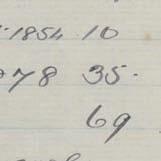 1854 10
78 35.
69